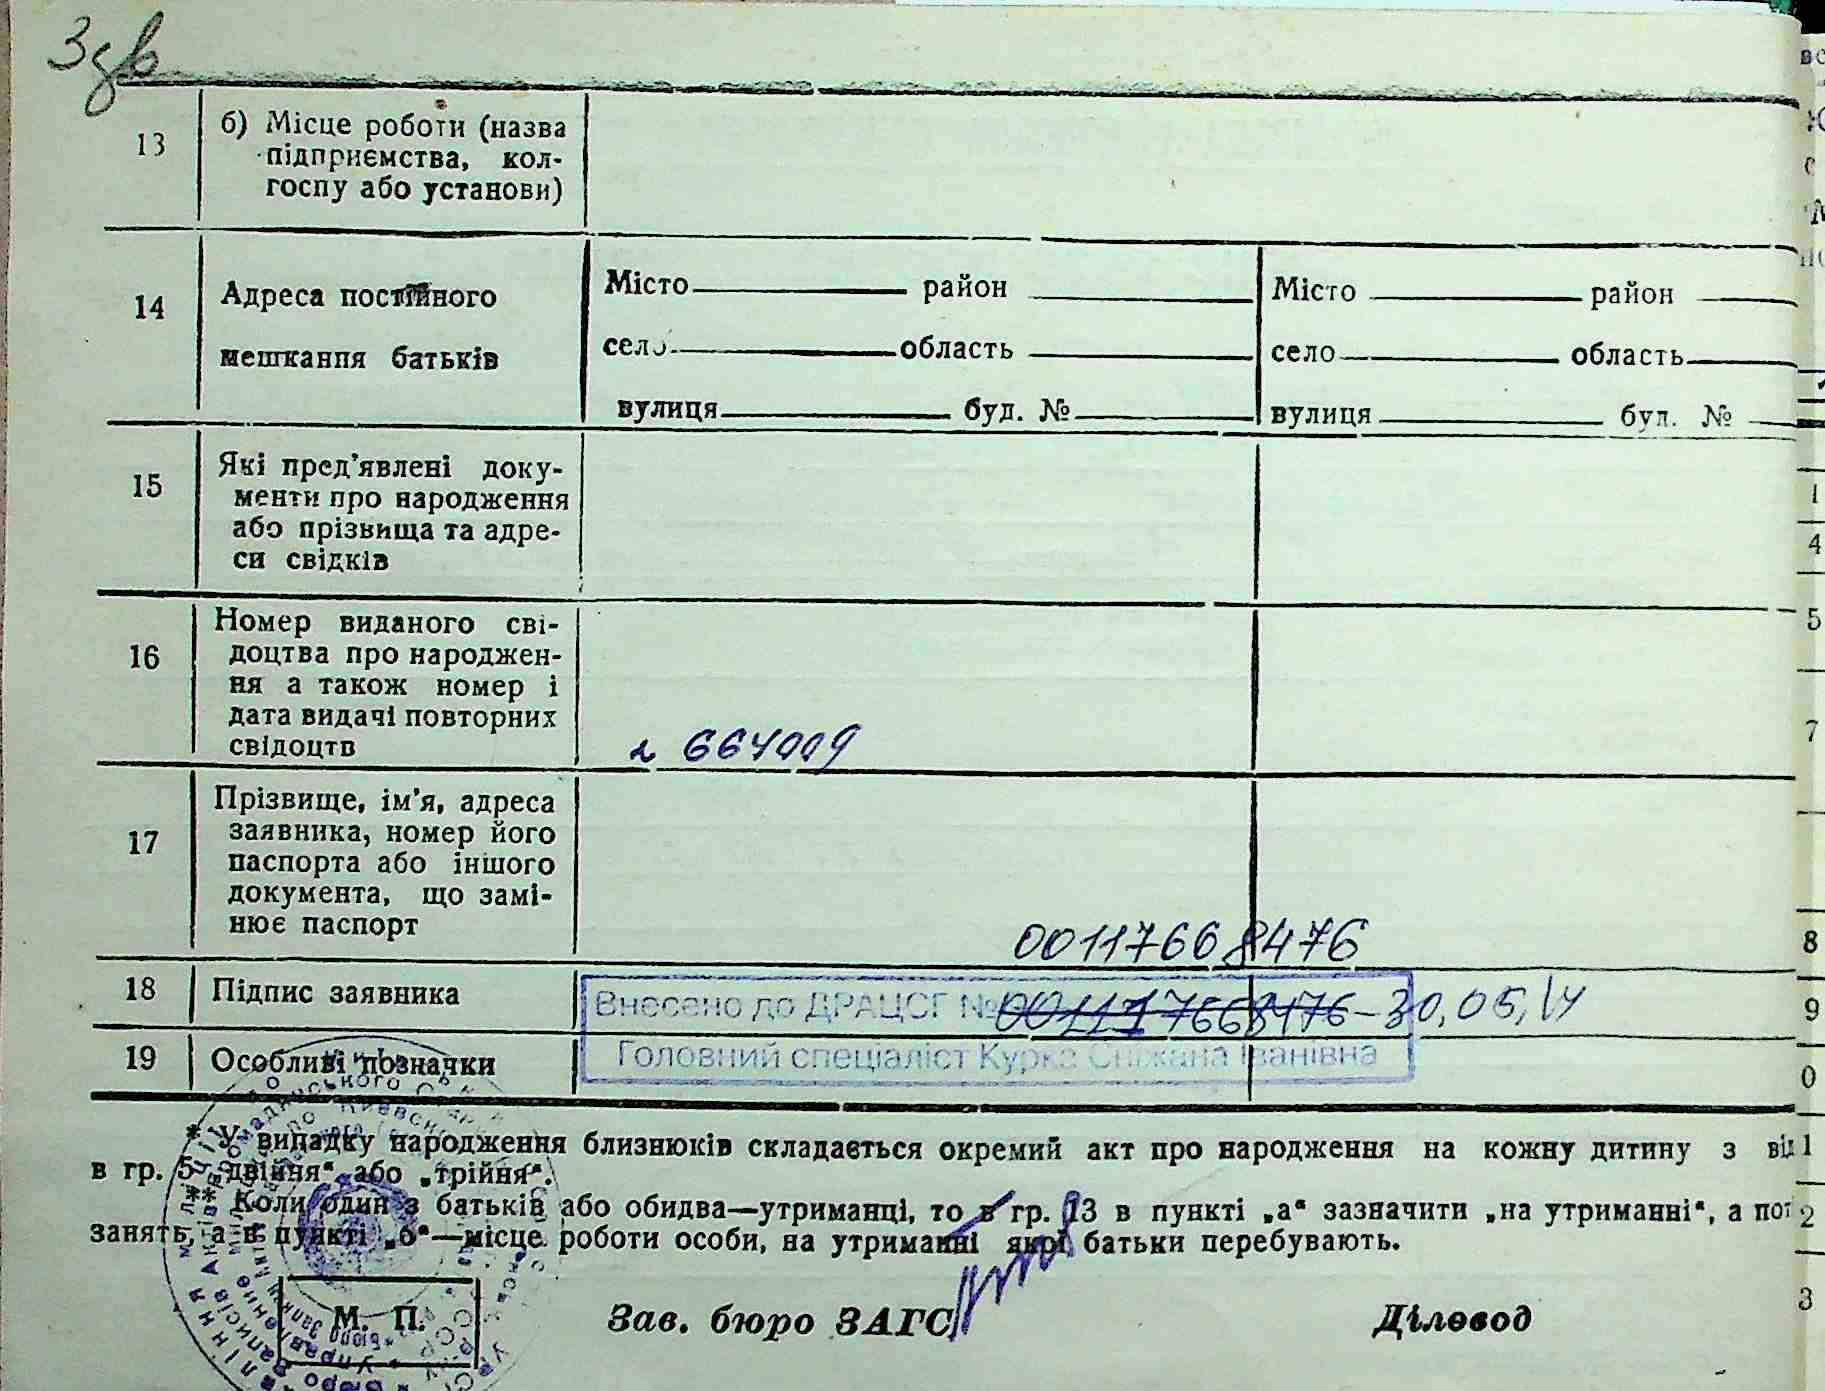 13 б) Місце роботи (назва
підприємства, кол-
госпу або установи)
14 Адреса постійного
мешкання батьків
Місто район
село область
вулиця буд. №
Місто район
село область
вулиця буд. №
15 Які пред'явлені доку-
менти про народження
або прізвища та адре-
си свідків
16 Номер виданого сві-
доцтва про народжен-
ня а також номер і
дата видачі повторних
свідоцтв
17 Прізвище, ім'я, адреса
заявника, номер його
паспорта або іншого
документа, що замі-
нює паспорт
00117668476
18 Підпис заявника
Внесено до ДРАЦСГ №
Головний спеціаліст Курка Сніжана Іванівна
19 Особливі позначки
* У випадку народження близнюків складається окремий акт про народження на кожну дитину з
в гр. 5 „двійня“ або „трійня“.
** Коли один з батьків або обидва—утриманці, то в гр. 13 в пункті „а“ зазначити „на утриманні“, а
занять, а в пункті „б“—місце роботи особи, на утриманні якої батьки перебувають.
М. П.
Зав. бюро ЗАГС
Діловод